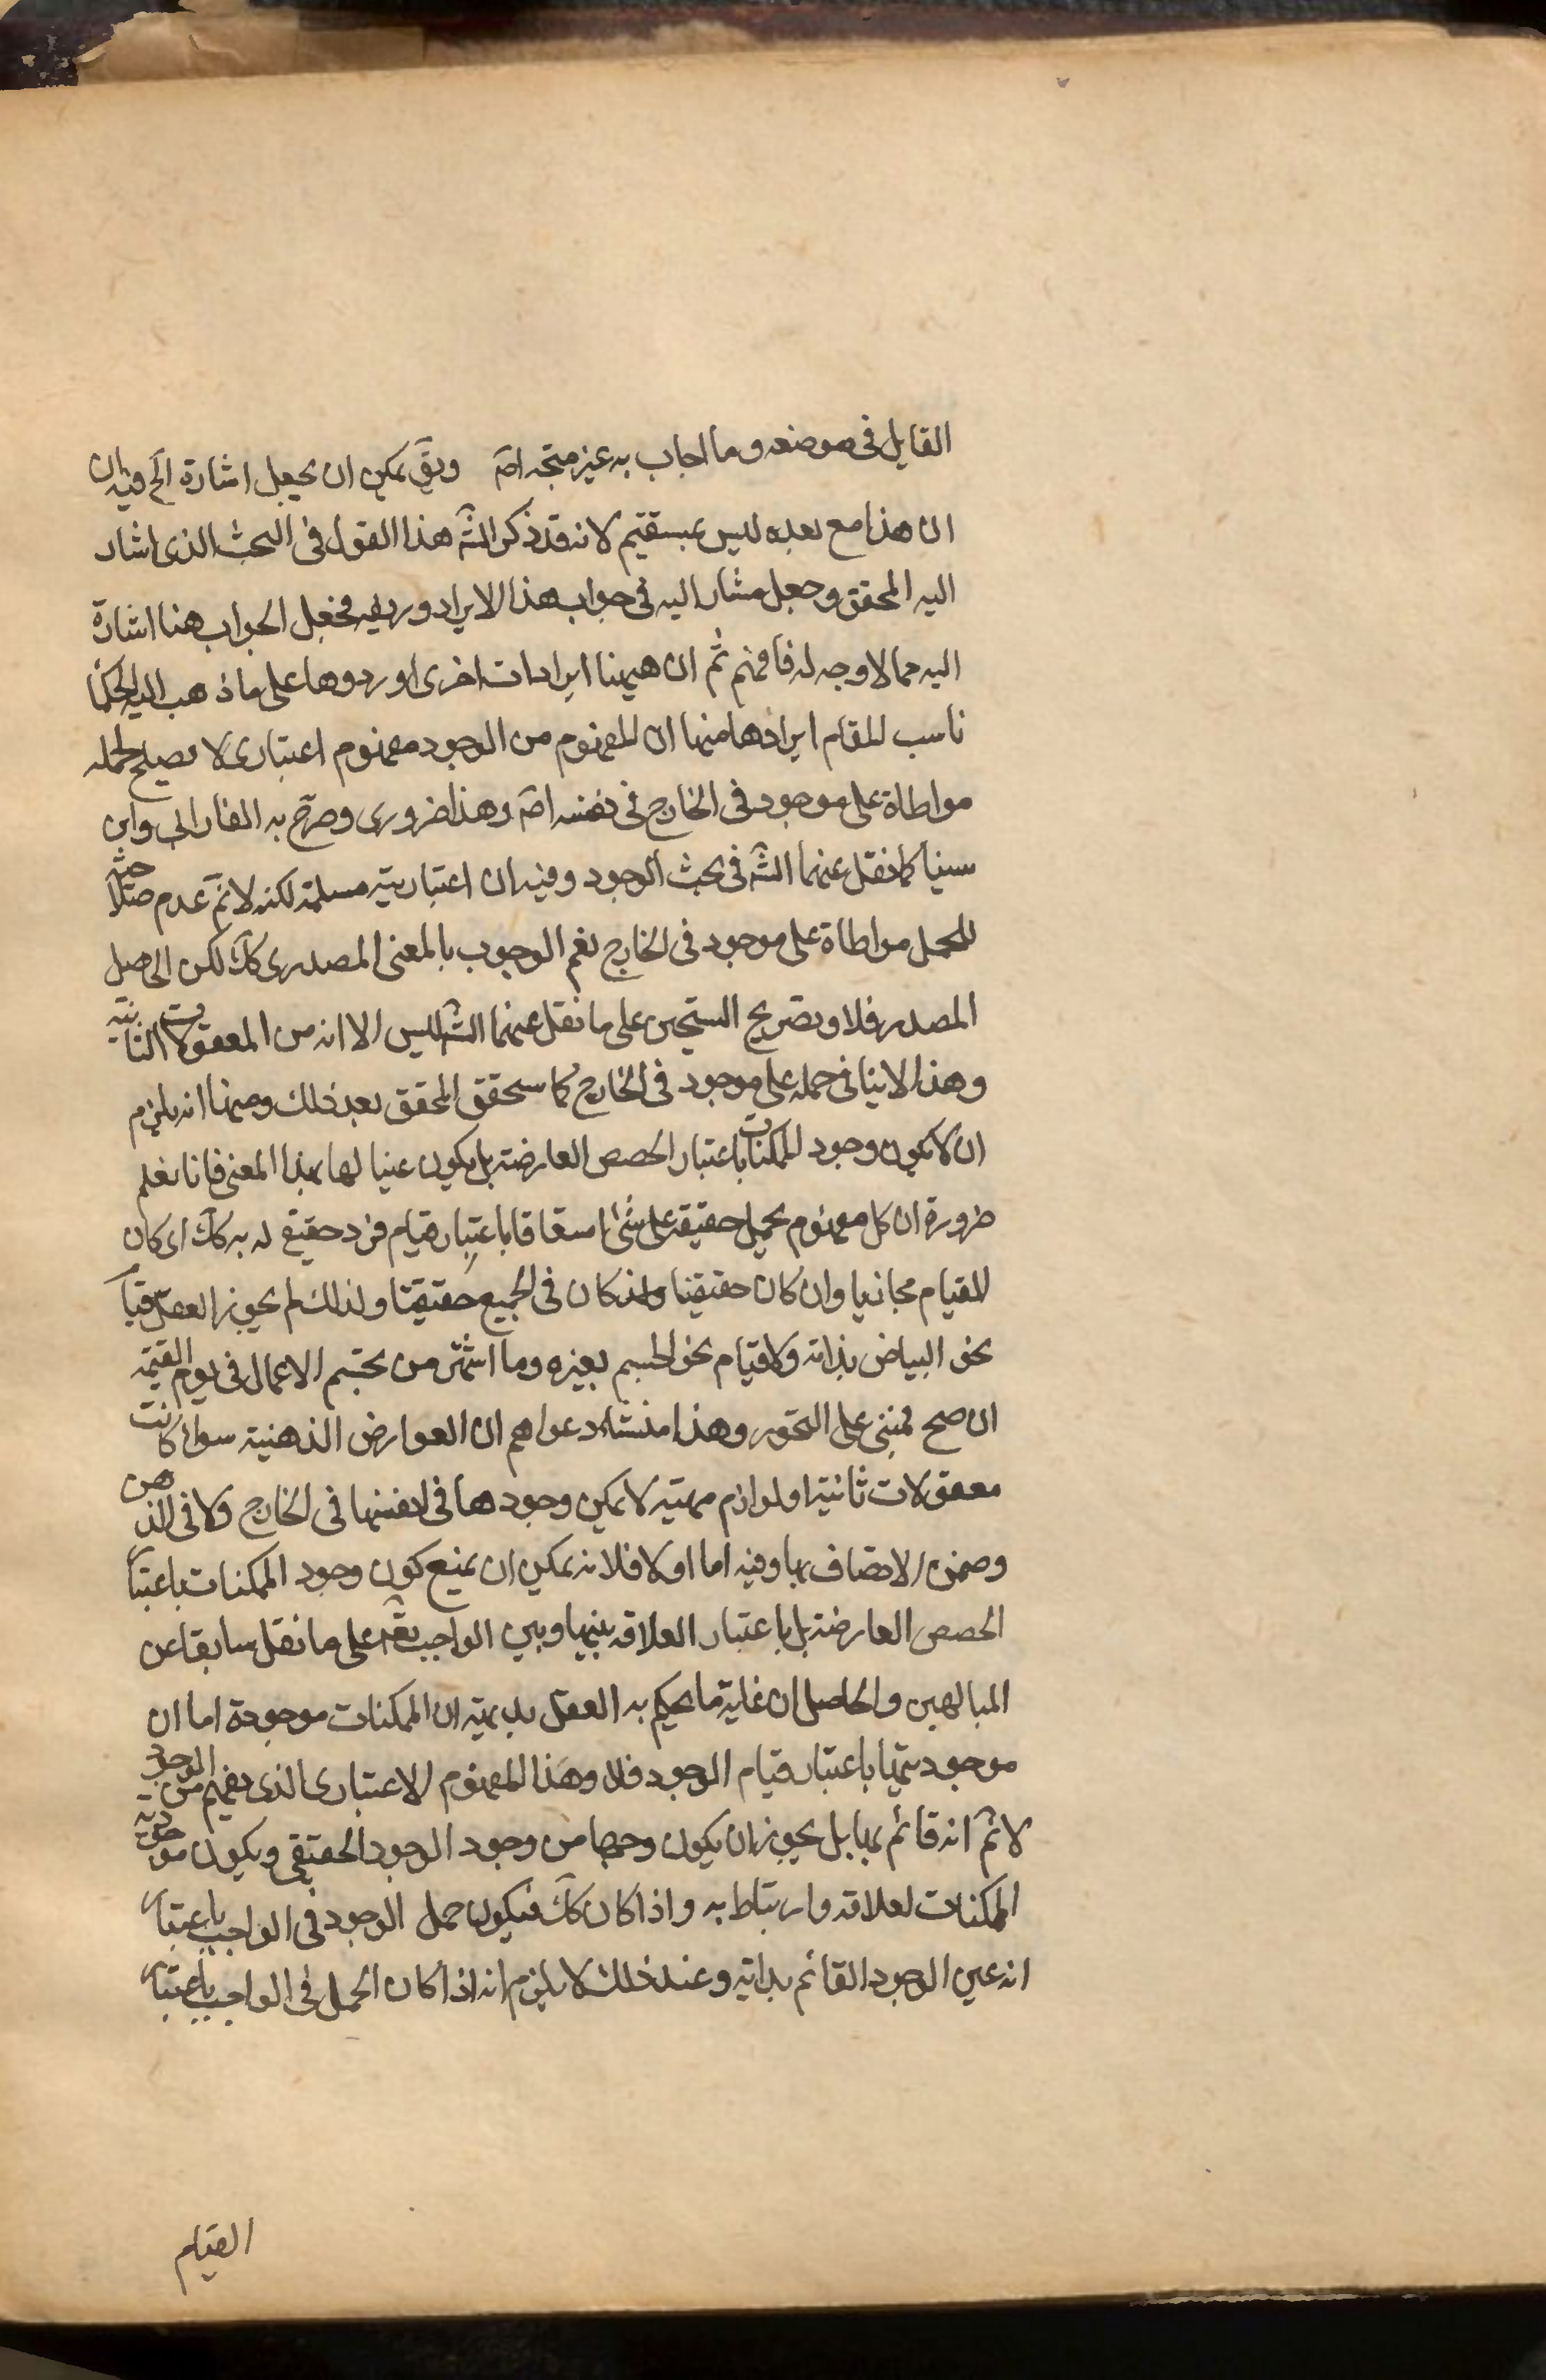 القايل فى موضعه وما اجاب به غير متجه اصَ وبقَى يمكن ان يجعل اشارة الَخ فيه ان
ان هذا مع بعده ليس بمستقيم لانه قد ذكر الشَه هذا القول فى البحث الذى اشار
اليه المحقق وجعل مشار اليه فى جواب هذا الايراد وريفه فجعل الجواب هنا اشارة
اليه مما لا وجه له فافهم ثم ان ههنا ايرادات اخرى اوردوها على ما ذهب اليه الحكما
ناسب للمقام ايرادها منها ان المفهوم من الوجود مفهوم اعتبارى لا يصلح لحمله
مواطاة على موجود فى الخارج فى نفسه اصَ وهذا ضرورى وصرح به الفارابى وابن
سينا كما نقل عنهما الشَه فى بحث الوجود وفيه ان اعتباريته مسلمة لكنه لانَم عدم صلاحيته
للحمل مواطاة على موجود فى الخارج نعم الوجوب بالمعنى المصدرى كَك لكن الحاصل
المصدر فلا وتصريح الشيخين على ما نقل عنهما الشَه لليس الا انه من المعقولات الثانية
وهذا لا ينافى حمله على موجود فى الخارج كما سيحقق المحقق بعد ذلك ومنها انه يلزم
ان لا يكون وجود الممكنات باعتبار الحصص العارضة بل يكون عينا لها بهذا المعنى فانا نعلم
ضرورة ان كل مفهوم يحمل حقيقة على شئ اشتقاقا باعتبار قيام فرد حقيقى له به كَك اى كان
القيام مجازيا وان كان حقيقيا وان كان فى الجميع حقيقيا ولذلك لم يجوز العقل قيام
نحو البياض بذاته ولا قيام نحو الجسم بغيره وما اشتهر من تجسم الاعمال فى يوم القيمة
ان صح فمبنى على التجوز وهذا منشاء دعواهم ان العوارض الذهنية سواء كانت
معقولات ثانية او لوازم مهية لا يمكن وجودها فى انفسها فى الخارج ولا فى الذهن
وضمن الاتصاف بها وفيه اما اولا فلانه يمكن ان يمنع كون وجود الممكنات باعتبار
الحصص العارضة بل باعتبار العلاقة بينها وبين الواجب تعَه على ما نقل سابقا عن
المتالهين والحاصل ان غاية ما يحكم به العقل بديهية ان الممكنات موجودة اما ان
موجوديتها باعتبار قيام الوجود فلا وهذا المفهوم الاعتبارى الذى يفهم من الوجود
لانَم انه قائم بها بل يجوز ان يكون وجها من وجود الوجود الحقيقى ويكون موجودية
الممكنات لعلاقة وارتباط به واذا كان كَك فيكون حمل الوجود فى الواجب باعتبار
انه عين الوجود القائم بذاته وعند ذلك لا يلزم انه اذا كان الحمل فى الواجب باعتبار
القيام